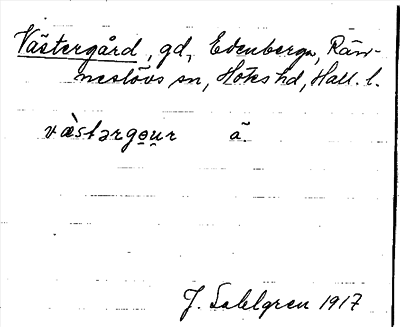 Västergård, gd, Edenberga, Rän-
neslövs sn, Höks hd, Hall. l.
væ̀stərgo̤ṳr ã.
J. Sahlgren 1917